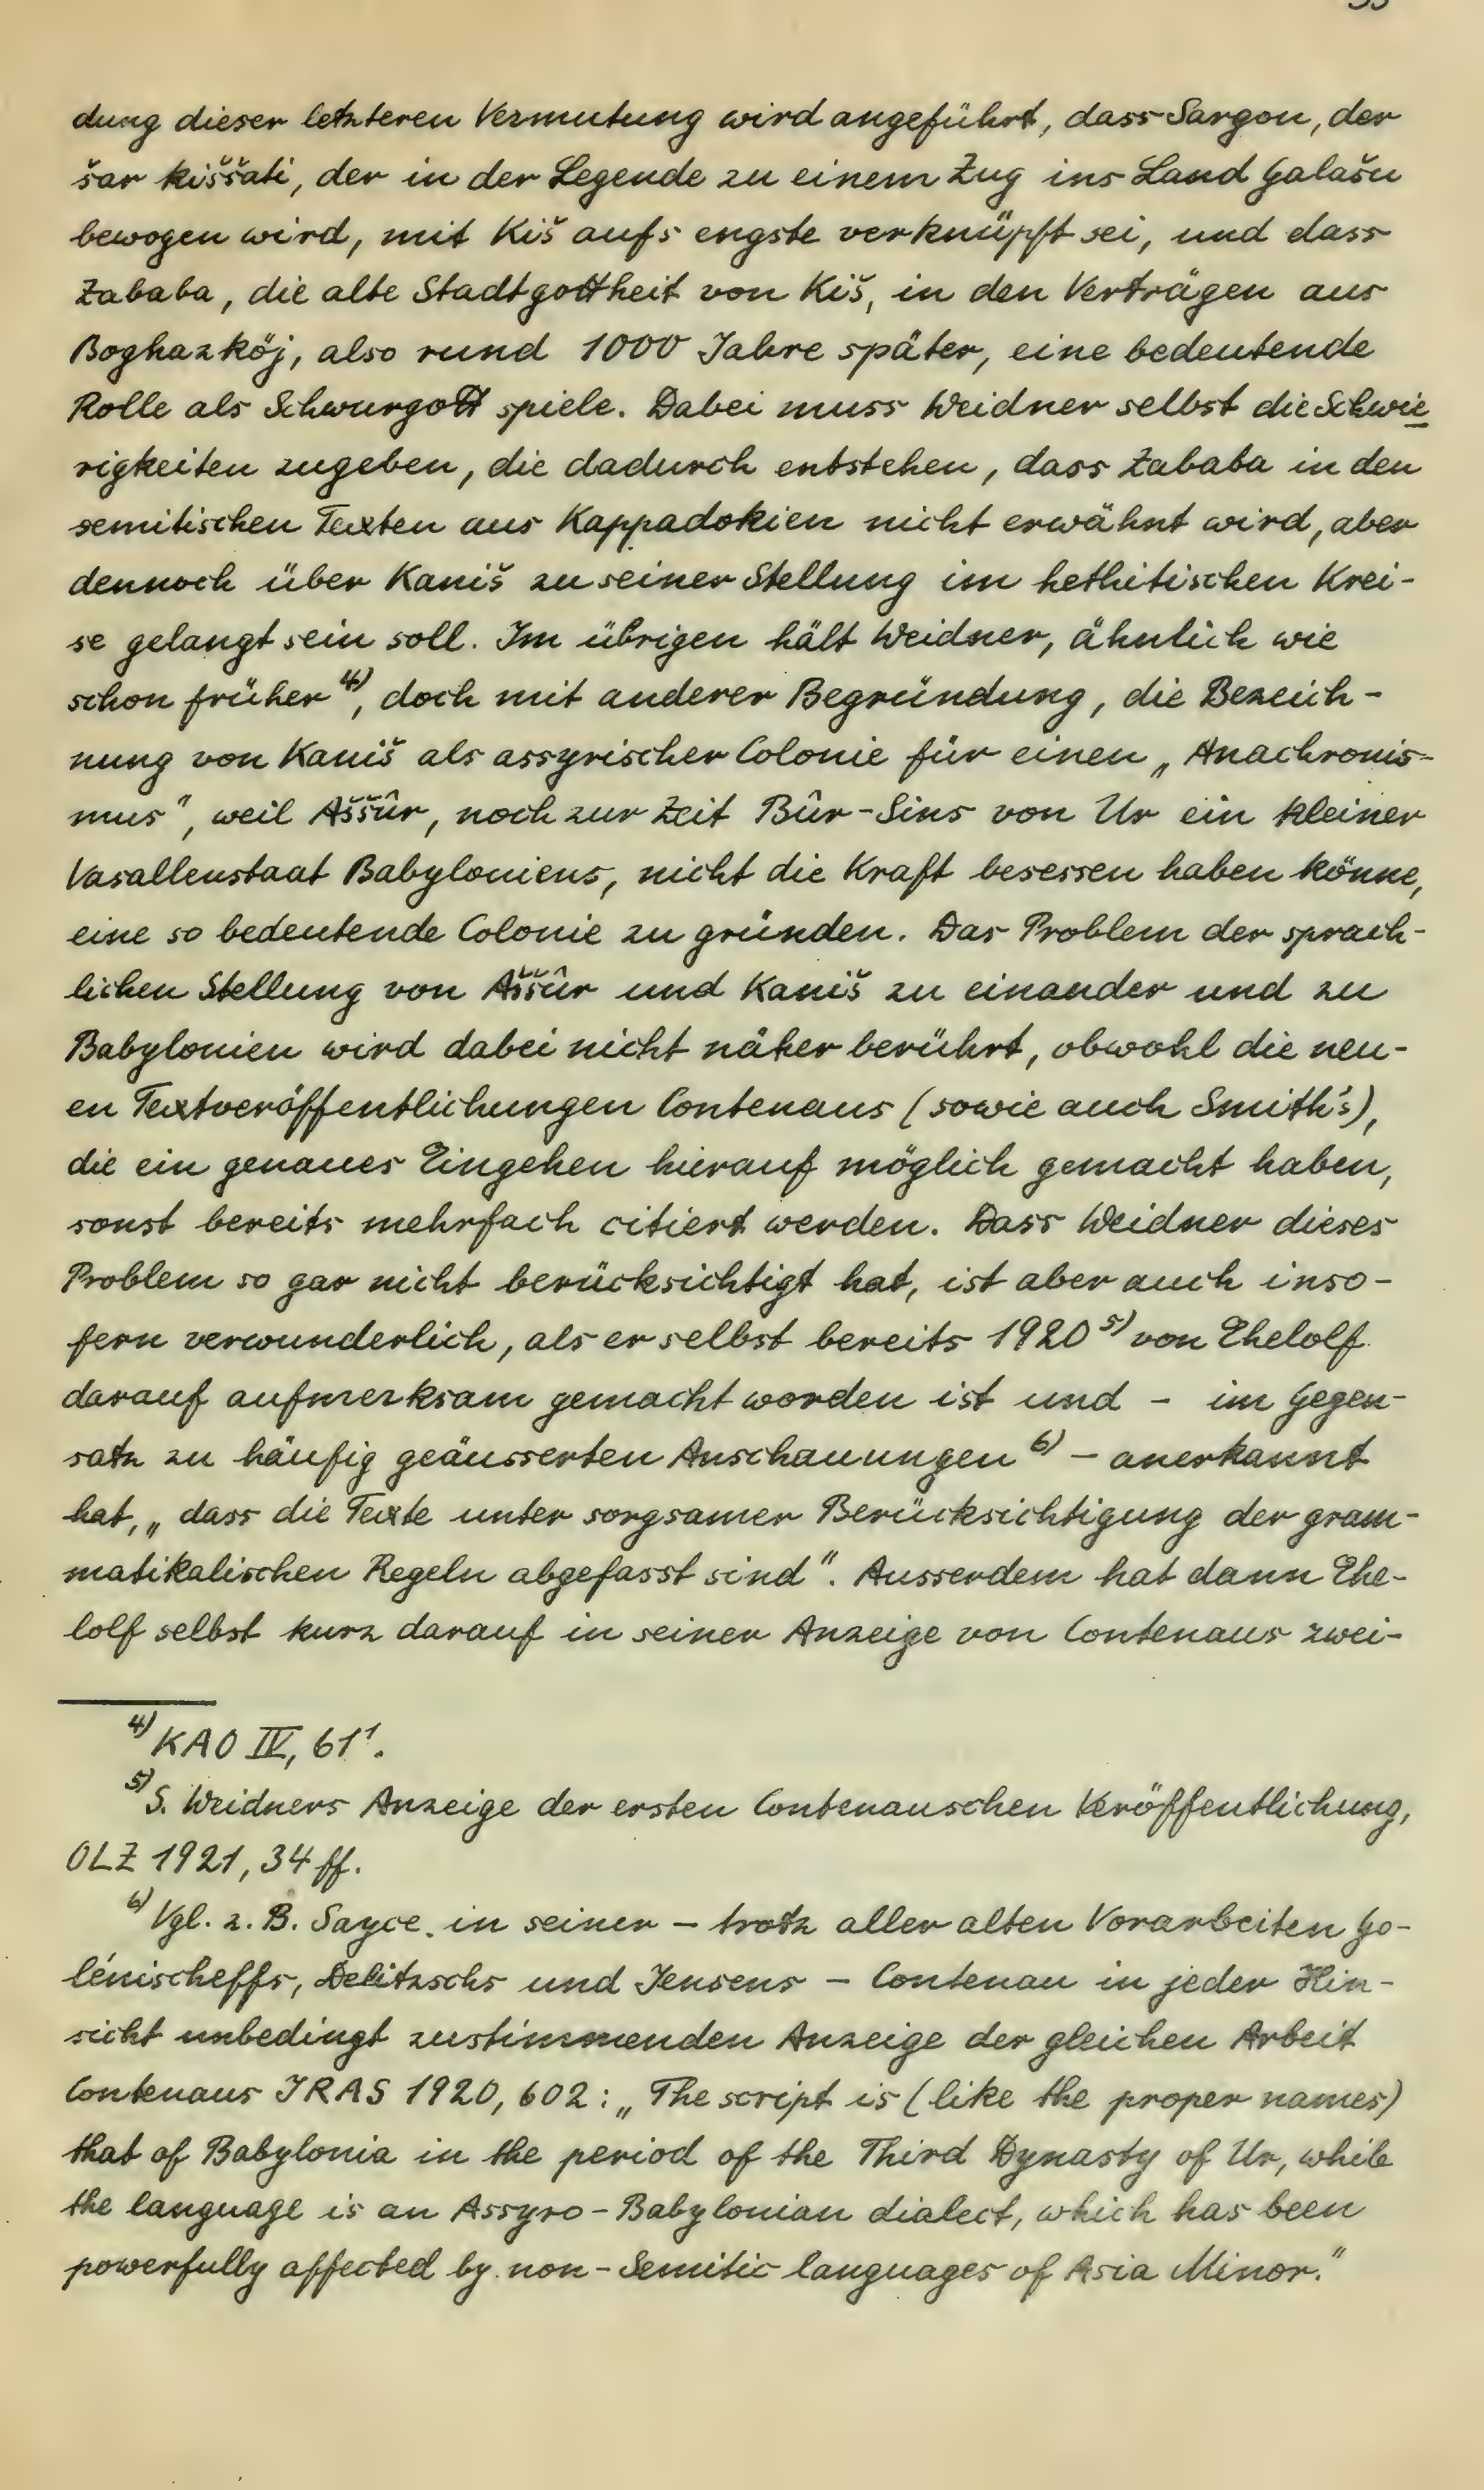 dung dieser letzteren Vermutung wird angeführt, dass Sargon, der
šar kiššati, der in der Legende zu einem Zug ins Land Galašu
bewogen wird, mit Kiš aufs engste verknüpft sei, und dass
Zababa, die alte Stadtgottheit von Kiš, in den Verträgen aus
Boghazköj, also rund 1000 Jahre später, eine bedeutende
Rolle als Schwurgott spiele. Dabei muss Weidner selbst die Schwie
rigkeiten zugeben, die dadurch entstehen, dass Zababa in den
semitischen Texten aus Kappadokien nicht erwähnt wird, aber
dennoch über Kaniš zu seiner Stellung im hethitischen Krei-
se gelangt sein soll. Im übrigen hält Weidner, ähnlich wie
schon früher 4), doch mit anderer Begründung, die Bezeich-
nung von Kaniš als assyrischer Colonie für einen „Anachronis-
mus", weil Aššûr, noch zur Zeit Bûr-Sins von Ur ein kleiner
Vasallenstaat Babyloniens, nicht die Kraft besessen haben könne,
eine so bedeutende Colonie zu gründen. Das Problem der sprach-
lichen Stellung von Aššûr und Kaniš zu einander und zu
Babylonien wird dabei nicht näher berührt, obwohl die neu-
en Textveröffentlichungen Contenaus (sowie auch Smith's),
die ein genaues Eingehen hierauf möglich gemacht haben,
sonst bereits mehrfach citiert werden. Dass Weidner dieses
Problem so gar nicht berücksichtigt hat, ist aber auch inso-
fern verwunderlich, als er selbst bereits 1920 5) von Ehelolf
darauf aufmerksam gemacht worden ist und – im Gegen-
satz zu häufig geäusserten Anschauungen 6) – anerkannt
hat, „dass die Texte unter sorgsamer Berücksichtigung der gram-
matikalischen Regeln abgefasst sind". Ausserdem hat dann Ehe-
lolf selbst kurz darauf in seiner Anzeige von Contenaus zwei-
4) KAO IV, 61¹.
5) S. Weidners Anzeige der ersten Contenauschen Veröffentlichung,
OLZ 1921, 34 ff.
6) Vgl. z. B. Sayce in seiner – trotz aller alten Vorarbeiten Go-
lénischeffs, Delitzschs und Jensens – Contenau in jeder Hin-
sicht unbedingt zustimmenden Anzeige der gleichen Arbeit
Contenaus JRAS 1920, 602: „The script is (like the proper names)
that of Babylonia in the period of the Third Dynasty of Ur, while
the language is an Assyro-Babylonian dialect, which has been
powerfully affected by non-Semitic languages of Asia Minor."